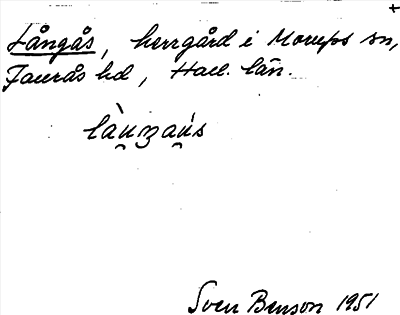 +
Långås, herrgård i Morups sn,
Faurås hd, Hall. län.
làu̯ʒau̯ś
Sven Benson 1951